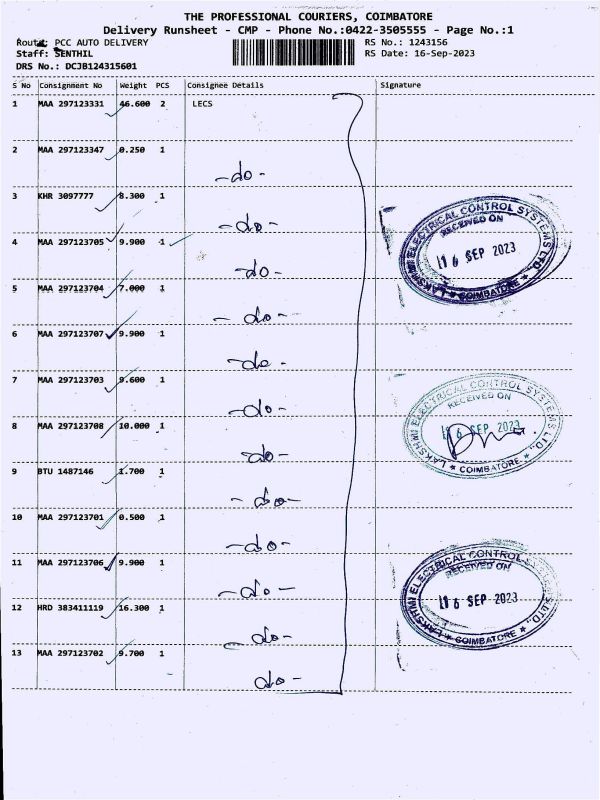 THE PROFESSIONAL COURIERS, COIMBATORE
Delivery Runsheet - CMP - Phone No.:0422-3505555 - Page No.:1
Route: PCC AUTO DELIVERY
RS No.: 1243156
Staff: SENTHIL
RS Date: 16-Sep-2023
DRS No.: DCJB124315601
S No Consignment No Weight PCS Consignee Details Signature
1 MAA 297123331 46.600 2 LECS
2 MAA 297123347 0.250 1
-do-
3 KHR 3097777 8.300 1
-do-
4 MAA 297123705 9.900 1
-do-
5 MAA 297123704 7.000 1
-do-
6 MAA 297123707 9.900 1
-do-
7 MAA 297123703 9.600 1
-do-
8 MAA 297123708 10.000 1
-do-
9 BTU 1487146 1.700 1
-do-
10 MAA 297123701 0.500 1
-do-
11 MAA 297123706 9.900 1
-do-
12 HRD 383411119 16.300 1
-do-
13 MAA 297123702 9.700 1
do-
LAKSHMI ELECTRICAL CONTROL SYSTEMS LTD.,
RECEIVED ON
16 SEP 2023
* COIMBATORE *
LAKSHMI ELECTRICAL CONTROL SYSTEMS LTD.,
RECEIVED ON
16 SEP 2023
* COIMBATORE *
LAKSHMI ELECTRICAL CONTROL SYSTEMS LTD.,
RECEIVED ON
16 SEP 2023
* COIMBATORE *